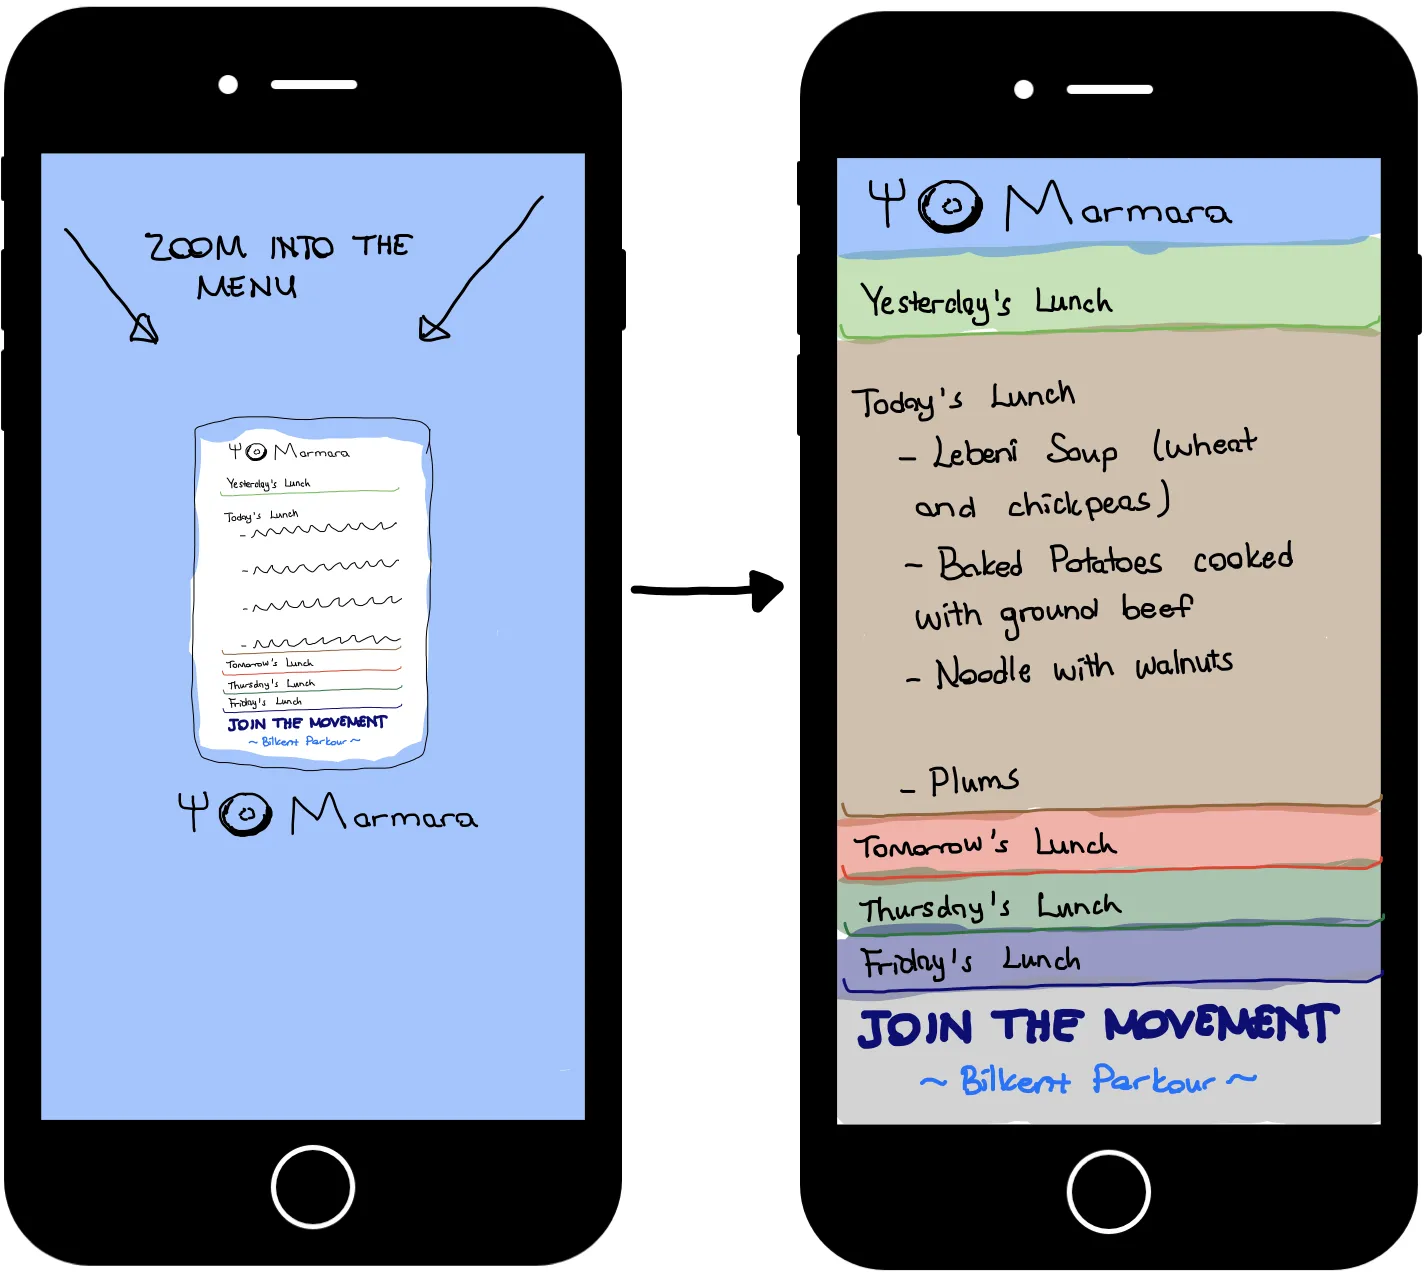 ZOOM INTO THE
MENU
Marmara
Yesterday's Lunch
Today's Lunch
-
-
-
-
Tomorrow's Lunch
Thursday's Lunch
Friday's Lunch
JOIN THE MOVEMENT
~ Bilkent Parkour ~
Marmara
Marmara
Yesterday's Lunch
Today's Lunch
- Lebeni Soup (wheat
and chickpeas)
- Baked Potatoes cooked
with ground beef
- Noodle with walnuts
- Plums
Tomorrow's Lunch
Thursday's Lunch
Friday's Lunch
JOIN THE MOVEMENT
~ Bilkent Parkour ~